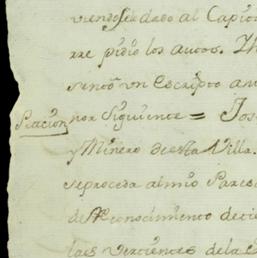 viendose dado al Capi
rre pidio los autos. Y h
sento un Escripto an
Peticion por siguiente = Jos
y Minero de esta Villa.
se proceda al mio Pares
de Reconocimiento de cie
las vertientes de la C